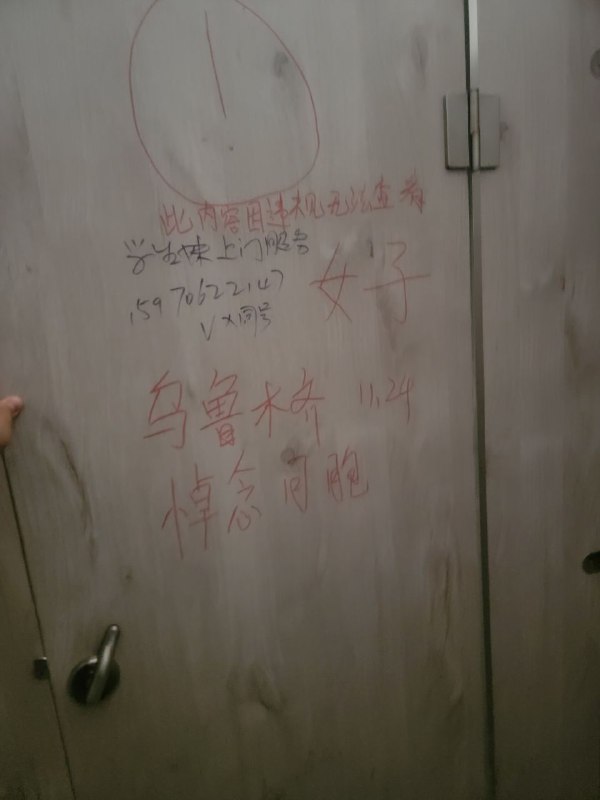 !
此内容因违规无法查看
学生妹上门服务
15970622147
VX同号
女子
乌鲁木齐 11.24
悼念同胞